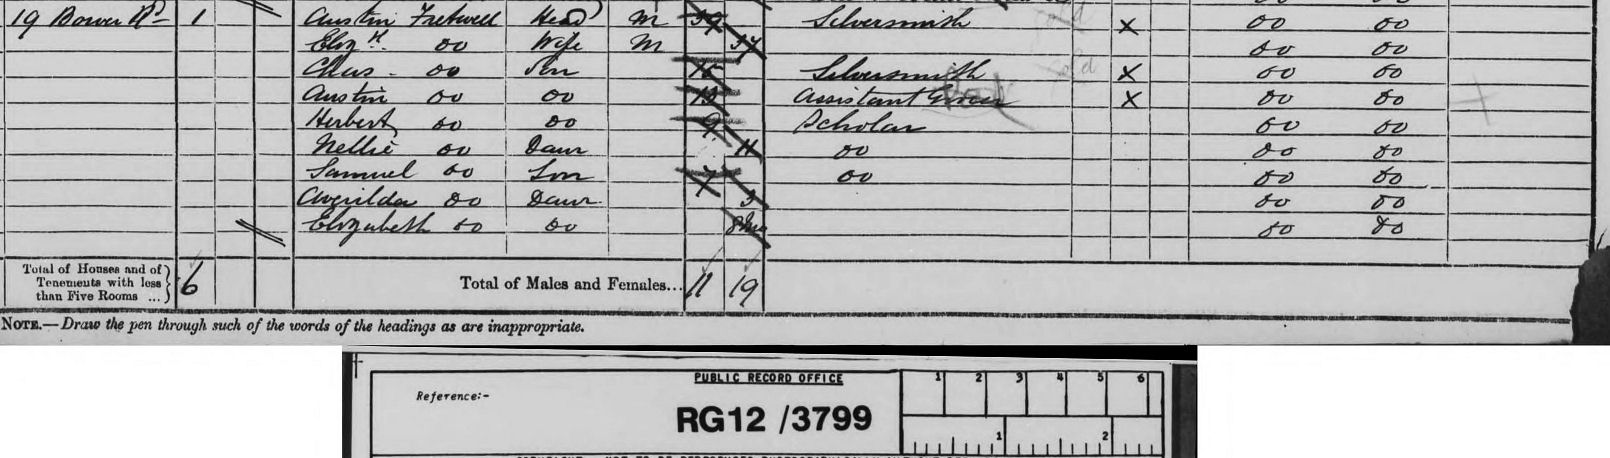 19 Bower Rd 1 Austin Fretwell Head M 39 Silversmith X do do
Elizth do Wife M 37 do do
Chas. do Son 15 Silversmith X do do
Austin do do 13 Assistant Grocer X do do
Herbert do do 9 Scholar do do
Nellie do Daur 11 do do do
Samuel do Son 7 do do do
Averilda do Daur 3 do do
Elizabeth do do 8mo do do
Total of Houses and of Tenements with less than Five Rooms ... 6 Total of Males and Females... 11 19
NOTE.—Draw the pen through such of the words of the headings as are inappropriate.
PUBLIC RECORD OFFICE 1 2 3 4 5 6
Reference:-
RG12 /3799
1 2